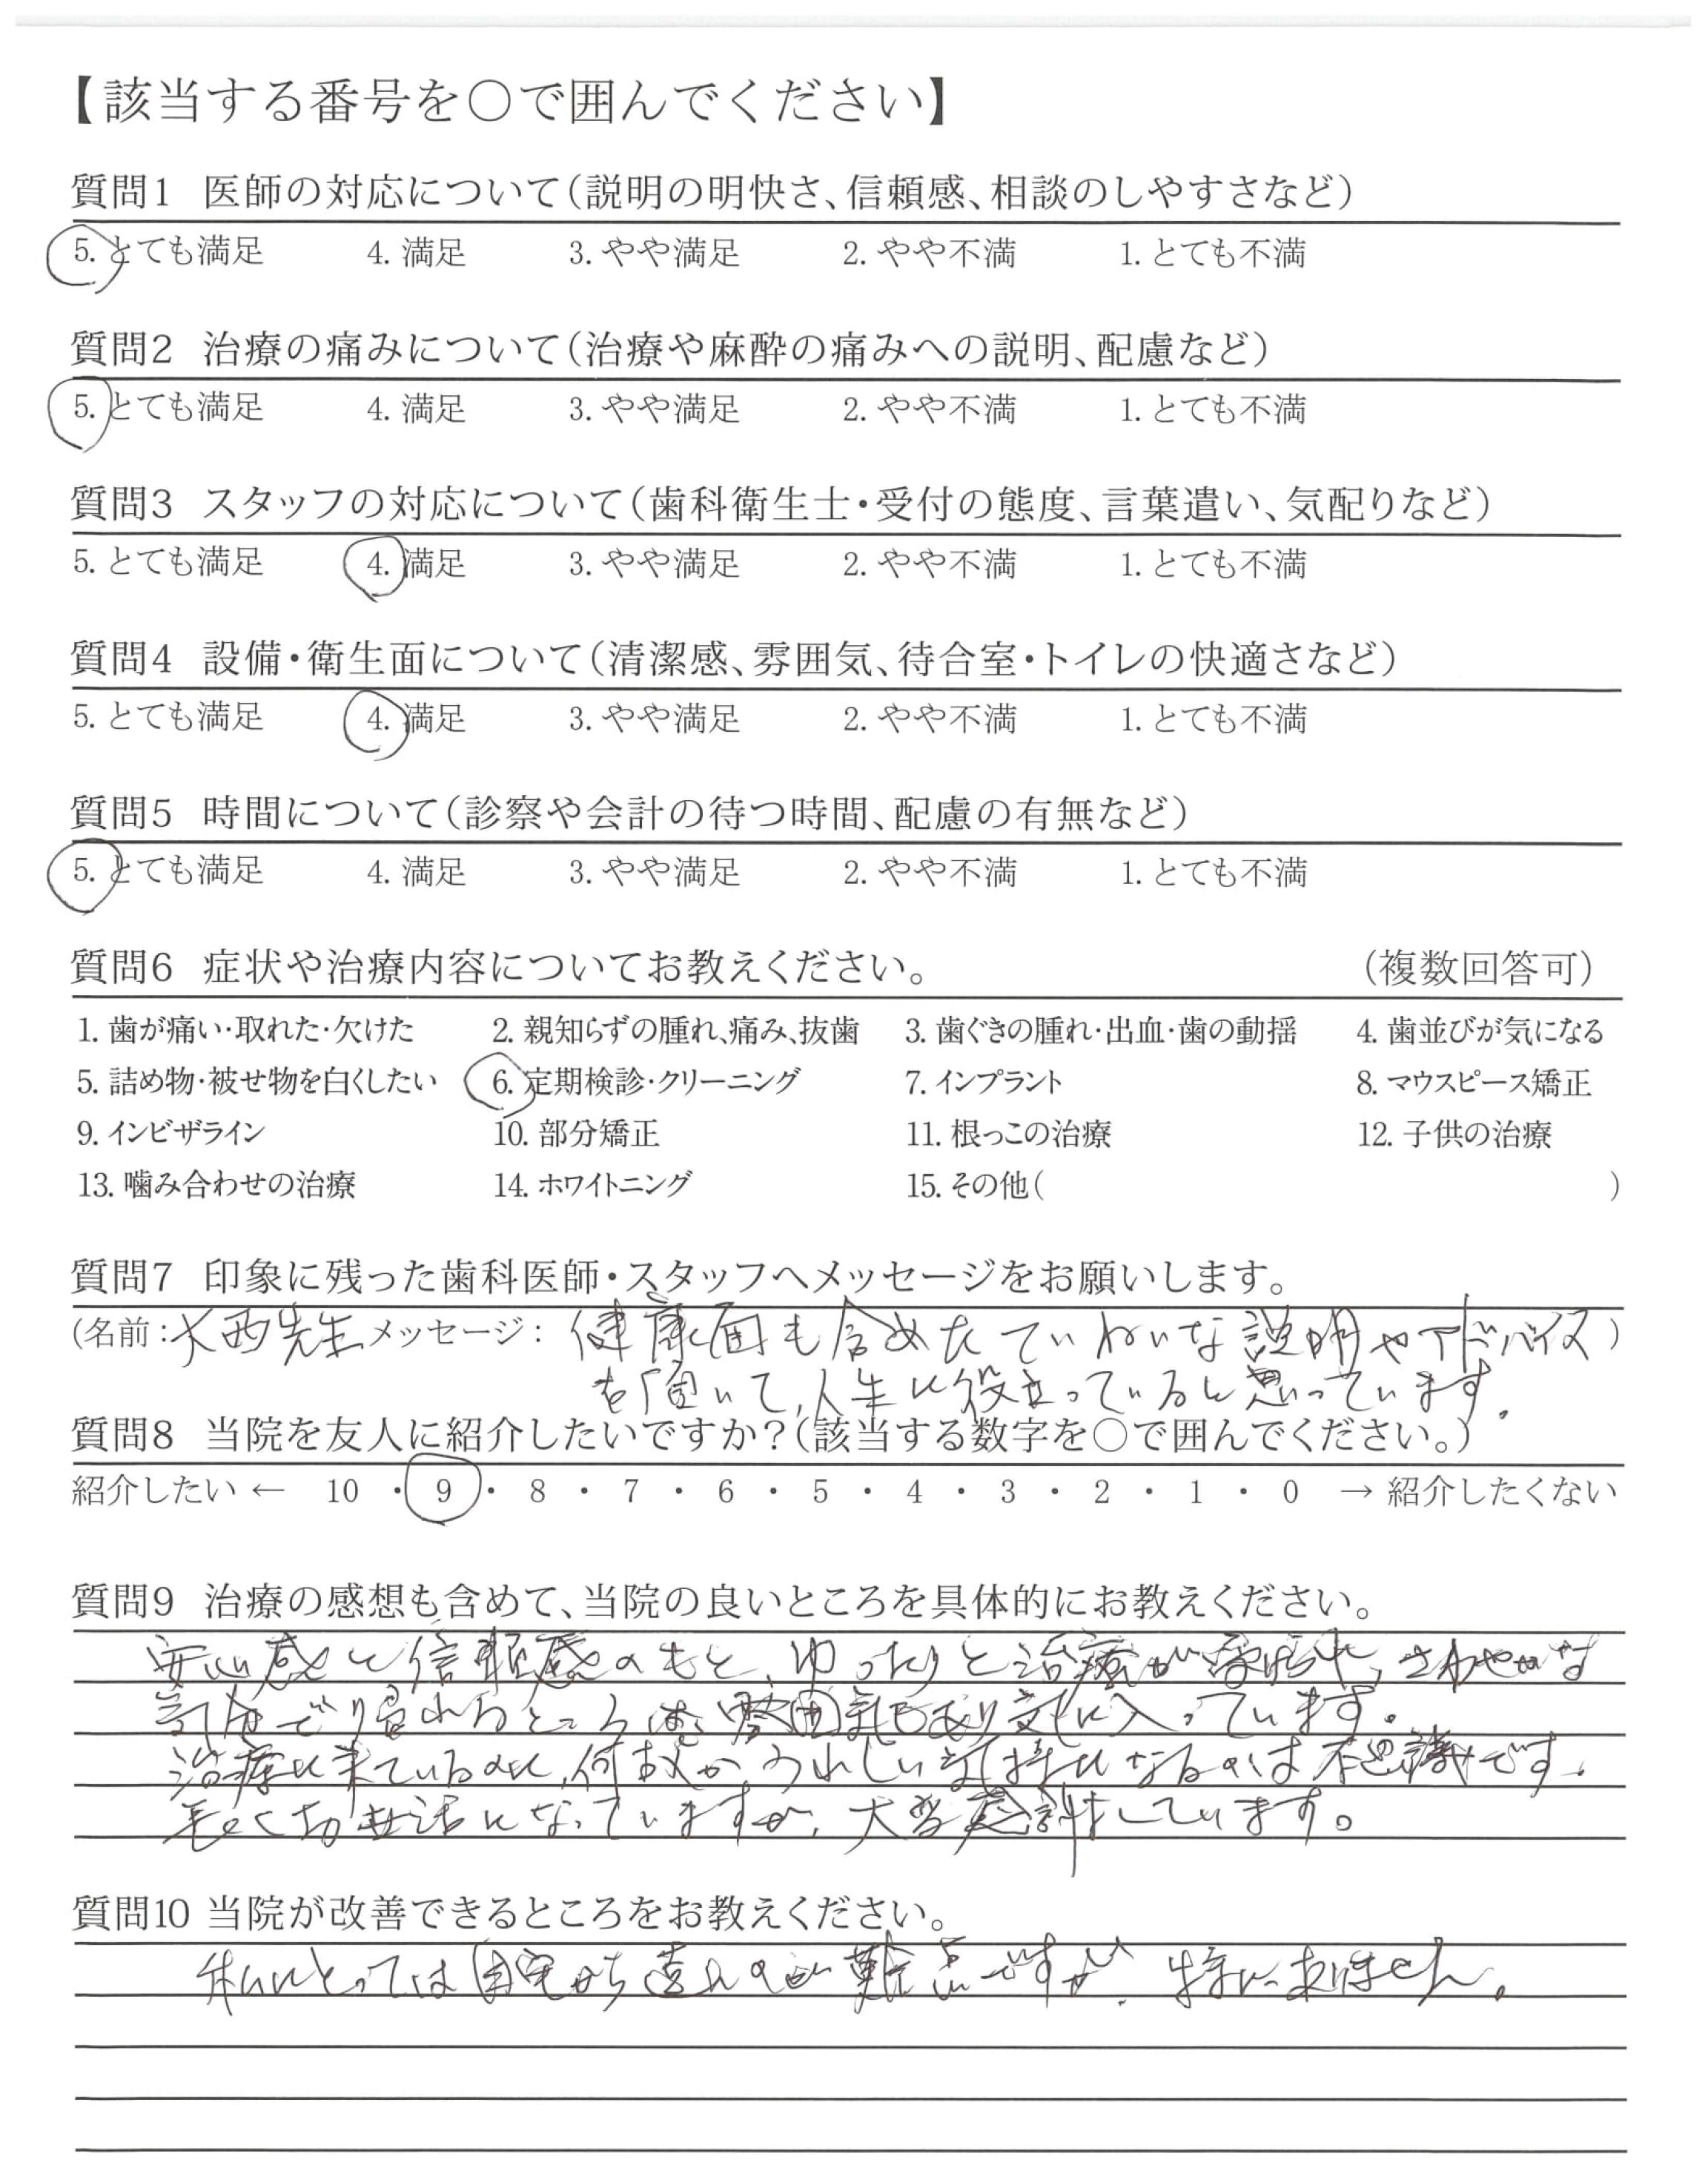 【該当する番号を○で囲んでください】
質問1 医師の対応について(説明の明快さ、信頼感、相談のしやすさなど)
5. とても満足 4. 満足 3. やや満足 2. やや不満 1. とても不満
質問2 治療の痛みについて(治療や麻酔の痛みへの説明、配慮など)
5. とても満足 4. 満足 3. やや満足 2. やや不満 1. とても不満
質問3 スタッフの対応について(歯科衛生士・受付の態度、言葉遣い、気配りなど)
5. とても満足 4. 満足 3. やや満足 2. やや不満 1. とても不満
質問4 設備・衛生面について(清潔感、雰囲気、待合室・トイレの快適さなど)
5. とても満足 4. 満足 3. やや満足 2. やや不満 1. とても不満
質問5 時間について(診察や会計の待つ時間、配慮の有無など)
5. とても満足 4. 満足 3. やや満足 2. やや不満 1. とても不満
質問6 症状や治療内容についてお教えください。 (複数回答可)
1. 歯が痛い・取れた・欠けた 2. 親知らずの腫れ、痛み、抜歯 3. 歯ぐきの腫れ・出血・歯の動揺 4. 歯並びが気になる
5. 詰め物・被せ物を白くしたい 6. 定期検診・クリーニング 7. インプラント 8. マウスピース矯正
9. インビザライン 10. 部分矯正 11. 根っこの治療 12. 子供の治療
13. 噛み合わせの治療 14. ホワイトニング 15. その他( )
質問7 印象に残った歯科医師・スタッフへメッセージをお願いします。
(名前：大西先生 メッセージ： 健康面も含めたていねいな説明やアドバイス)
を頂いて、人生に役立っていると思っています。
質問8 当院を友人に紹介したいですか？(該当する数字を○で囲んでください。)
紹介したい ← 10 ・ 9 ・ 8 ・ 7 ・ 6 ・ 5 ・ 4 ・ 3 ・ 2 ・ 1 ・ 0 → 紹介したくない
質問9 治療の感想も含めて、当院の良いところを具体的にお教えください。
安心感と信頼感のもと、ゆったりと治療が受けられ、さわやかな
気分で帰れるところは、雰囲気もあり気に入っています。
治療に来ているのに、何故か、うれしい気持になるのは不思議です。
長くお世話になっていますが、大変感謝しています。
質問10 当院が改善できるところをお教えください。
私にとっては自宅から遠いのが難点ですが、特にありません。